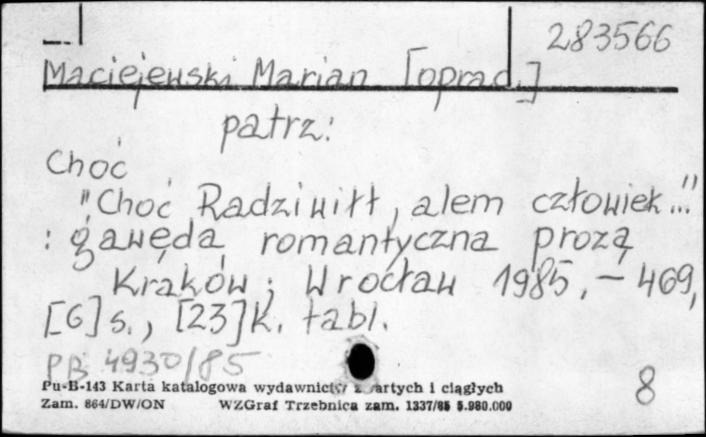 283566
Maciejewski Marian [oprac.]
patrz:
Choć
"Choć Radziwiłł, alem człowiek..."
: gawęda romantyczna prozą
Kraków ; Wrocław 1985, – 469,
[6] s., [23] k. tabl.
PB 4930/85
8
Pu-B-143 Karta katalogowa wydawnictw zwartych i ciągłych
Zam. 864/DW/ON WZGraf Trzebnica zam. 1337/85 5.980.000